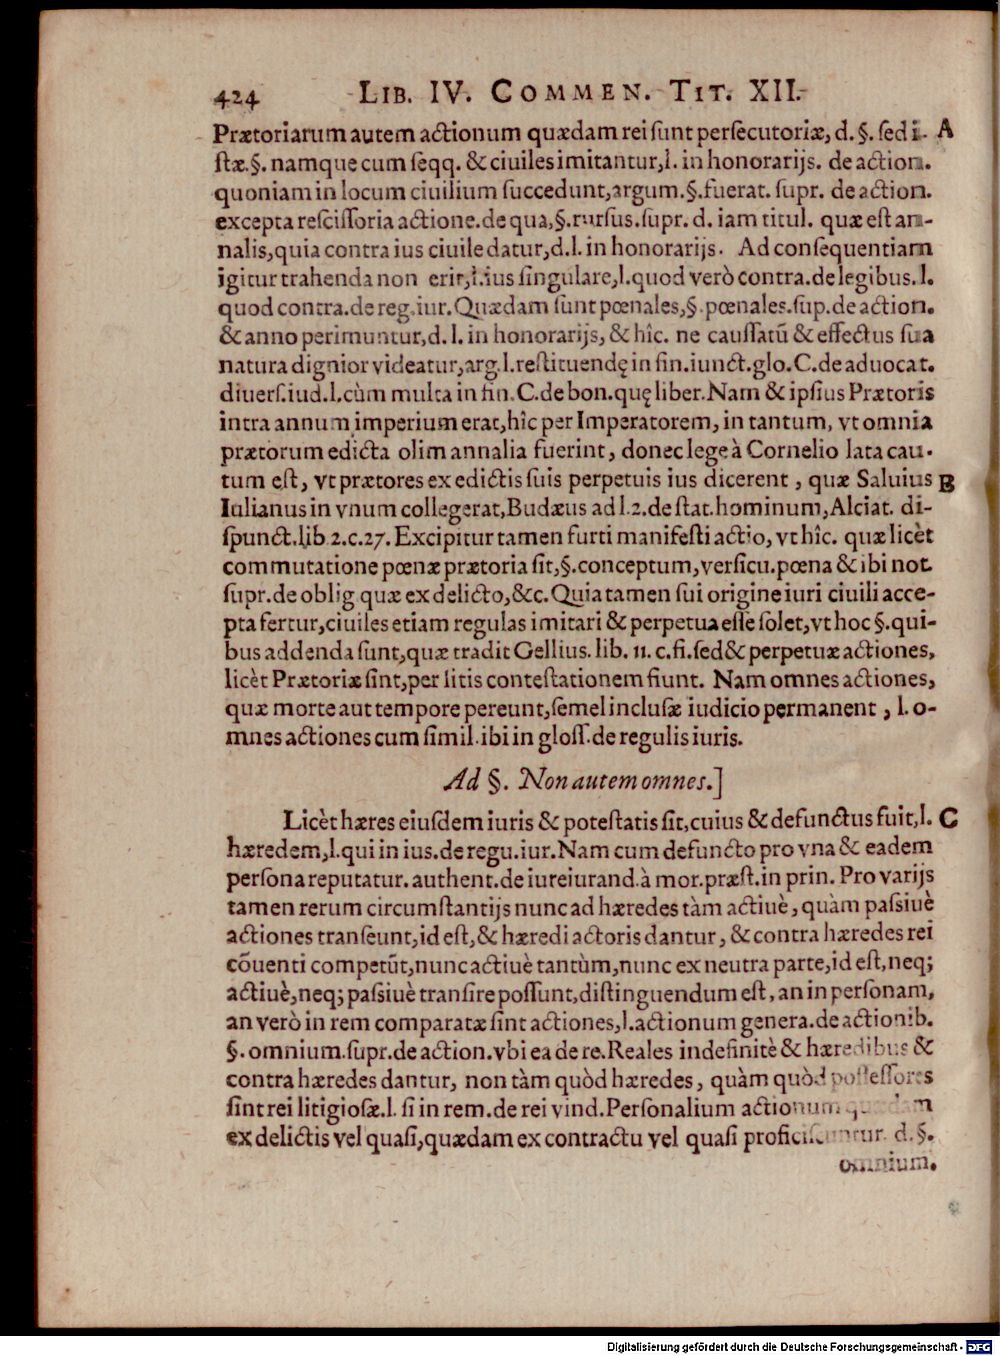 424 LIB. IV. COMMEN. TIT. XII.
Prætoriarum autem actionum quædam rei sunt persecutoriæ, d. §. sed i- A
stæ. §. namque cum seqq. & ciuiles imitantur, l. in honorarijs. de action.
quoniam in locum ciuilium succedunt, argum. §. fuerat. supr. de action.
excepta rescissoria actione. de qua, §. rursus. supr. d. iam titul. quæ est an-
nalis, quia contra ius ciuile datur, d. l. in honorarijs. Ad consequentiam
igitur trahenda non erit, l. ius singulare, l. quod verò contra. de legibus. l.
quod contra. de reg. iur. Quædam sunt pœnales, §. pœnales. sup. de action.
& anno perimuntur, d. l. in honorarijs, & hîc. ne caussatũ & effectus sua
natura dignior videatur, arg. l. restituendę in fin. iunct. glo. C. de aduocat.
diuers. iud. l. cùm multa in fin. C. de bon. quę liber. Nam & ipsius Prætoris
intra annum imperium erat, hîc per Imperatorem, in tantum, vt omnia
prætorum edicta olim annalia fuerint, donec lege à Cornelio lata cau-
tum est, vt prætores ex edictis suis perpetuis ius dicerent, quæ Saluius B
Iulianus in vnum collegerat, Budæus ad l. 2. de stat. hominum, Alciat. di-
spunct. lib 2. c. 27. Excipitur tamen furti manifesti actio, vt hîc. quæ licèt
commutatione pœnæ prætoria sit, §. conceptum, versicu. pœna & ibi not.
supr. de oblig. quæ ex delicto, &c. Quia tamen sui origine iuri ciuili acce-
pta fertur, ciuiles etiam regulas imitari & perpetua esse solet, vt hoc §. qui-
bus addenda sunt, quæ tradit Gellius. lib. 11. c. fi. sed & perpetuæ actiones,
licèt Prætoriæ sint, per litis contestationem fiunt. Nam omnes actiones,
quæ morte aut tempore pereunt, semel inclusæ iudicio permanent, l. o-
mnes actiones cum simil. ibi in gloss. de regulis iuris.
Ad §. Non autem omnes.]
Licèt hæres eiusdem iuris & potestatis sit, cuius & defunctus fuit, l. C
hæredem, l. qui in ius. de regu. iur. Nam cum defuncto pro vna & eadem
persona reputatur. authent. de iureiurand. à mor. præst. in prin. Pro varijs
tamen rerum circumstantijs nunc ad hæredes tàm actiuè, quàm passiuè
actiones transeunt, id est, & hæredi actoris dantur, & contra hæredes rei
cõuenti competũt, nunc actiuè tantùm, nunc ex neutra parte, id est, neq;
actiuè, neq; passiuè transire possunt, distinguendum est, an in personam,
an verò in rem comparatæ sint actiones, l. actionum genera. de actionib.
§. omnium. supr. de action. vbi ea de re. Reales indefinitè & hæredibus &
contra hæredes dantur, non tàm quòd hæredes, quàm quòd possessores
sint rei litigiosæ. l. si in rem. de rei vind. Personalium actionum quædam
ex delictis vel quasi, quædam ex contractu vel quasi proficiscuntur. d. §.
omnium.
Digitalisierung gefördert durch die Deutsche Forschungsgemeinschaft - DFG